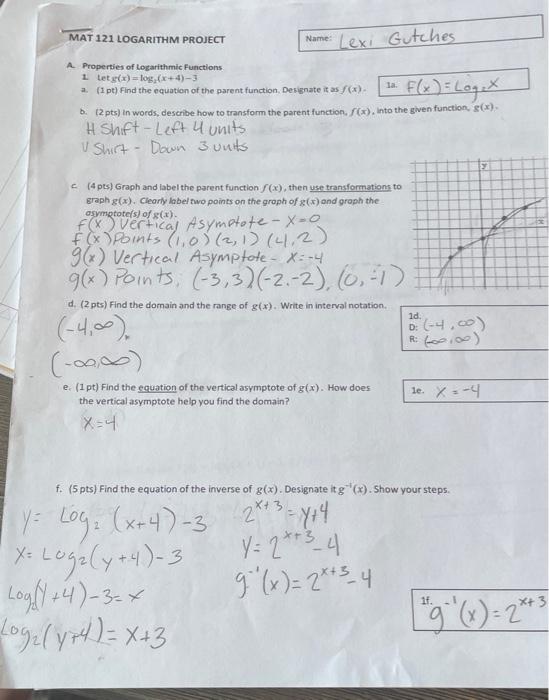 MAT 121 LOGARITHM PROJECT
Name: Lexi Gutches
A. Properties of Logarithmic Functions
1. Let g(x) = log₂(x+4)−3
a. (1 pt) Find the equation of the parent function. Designate it as f(x).
1a. f(x) = Log₂X
b. (2 pts) In words, describe how to transform the parent function, f(x), into the given function, g(x).
H Shift - Left 4 units
V Shift - Down 3 units
c. (4 pts) Graph and label the parent function f(x), then use transformations to
graph g(x). Clearly label two points on the graph of g(x) and graph the
asymptote(s) of g(x).
f(x) Vertical Asymptote - X=0
f(x) Points (1,0) (2,1) (4,2)
g(x) Vertical Asymptote - X=-4
g(x) Points: (-3,3)(-2,-2), (0,-1)
y
x
d. (2 pts) Find the domain and the range of g(x). Write in interval notation.
(-4,∞)
(-∞,∞)
1d.
D: (-4,∞)
R: (-∞,∞)
e. (1 pt) Find the equation of the vertical asymptote of g(x). How does
the vertical asymptote help you find the domain?
1e. X = -4
X=4
f. (5 pts) Find the equation of the inverse of g(x). Designate it g⁻¹(x). Show your steps.
y = Log₂(x+4)-3
X= Log₂(y+4)-3
Log₂(y+4)-3=x
Log₂(y+4)= X+3
2ˣ⁺³=y+4
y= 2ˣ⁺³-4
g⁻¹(x)= 2ˣ⁺³-4
1f. g⁻¹(x)=2ˣ⁺³